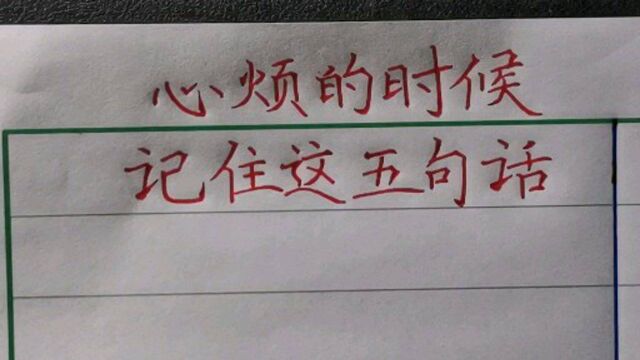 心烦的时候
记住这五句话